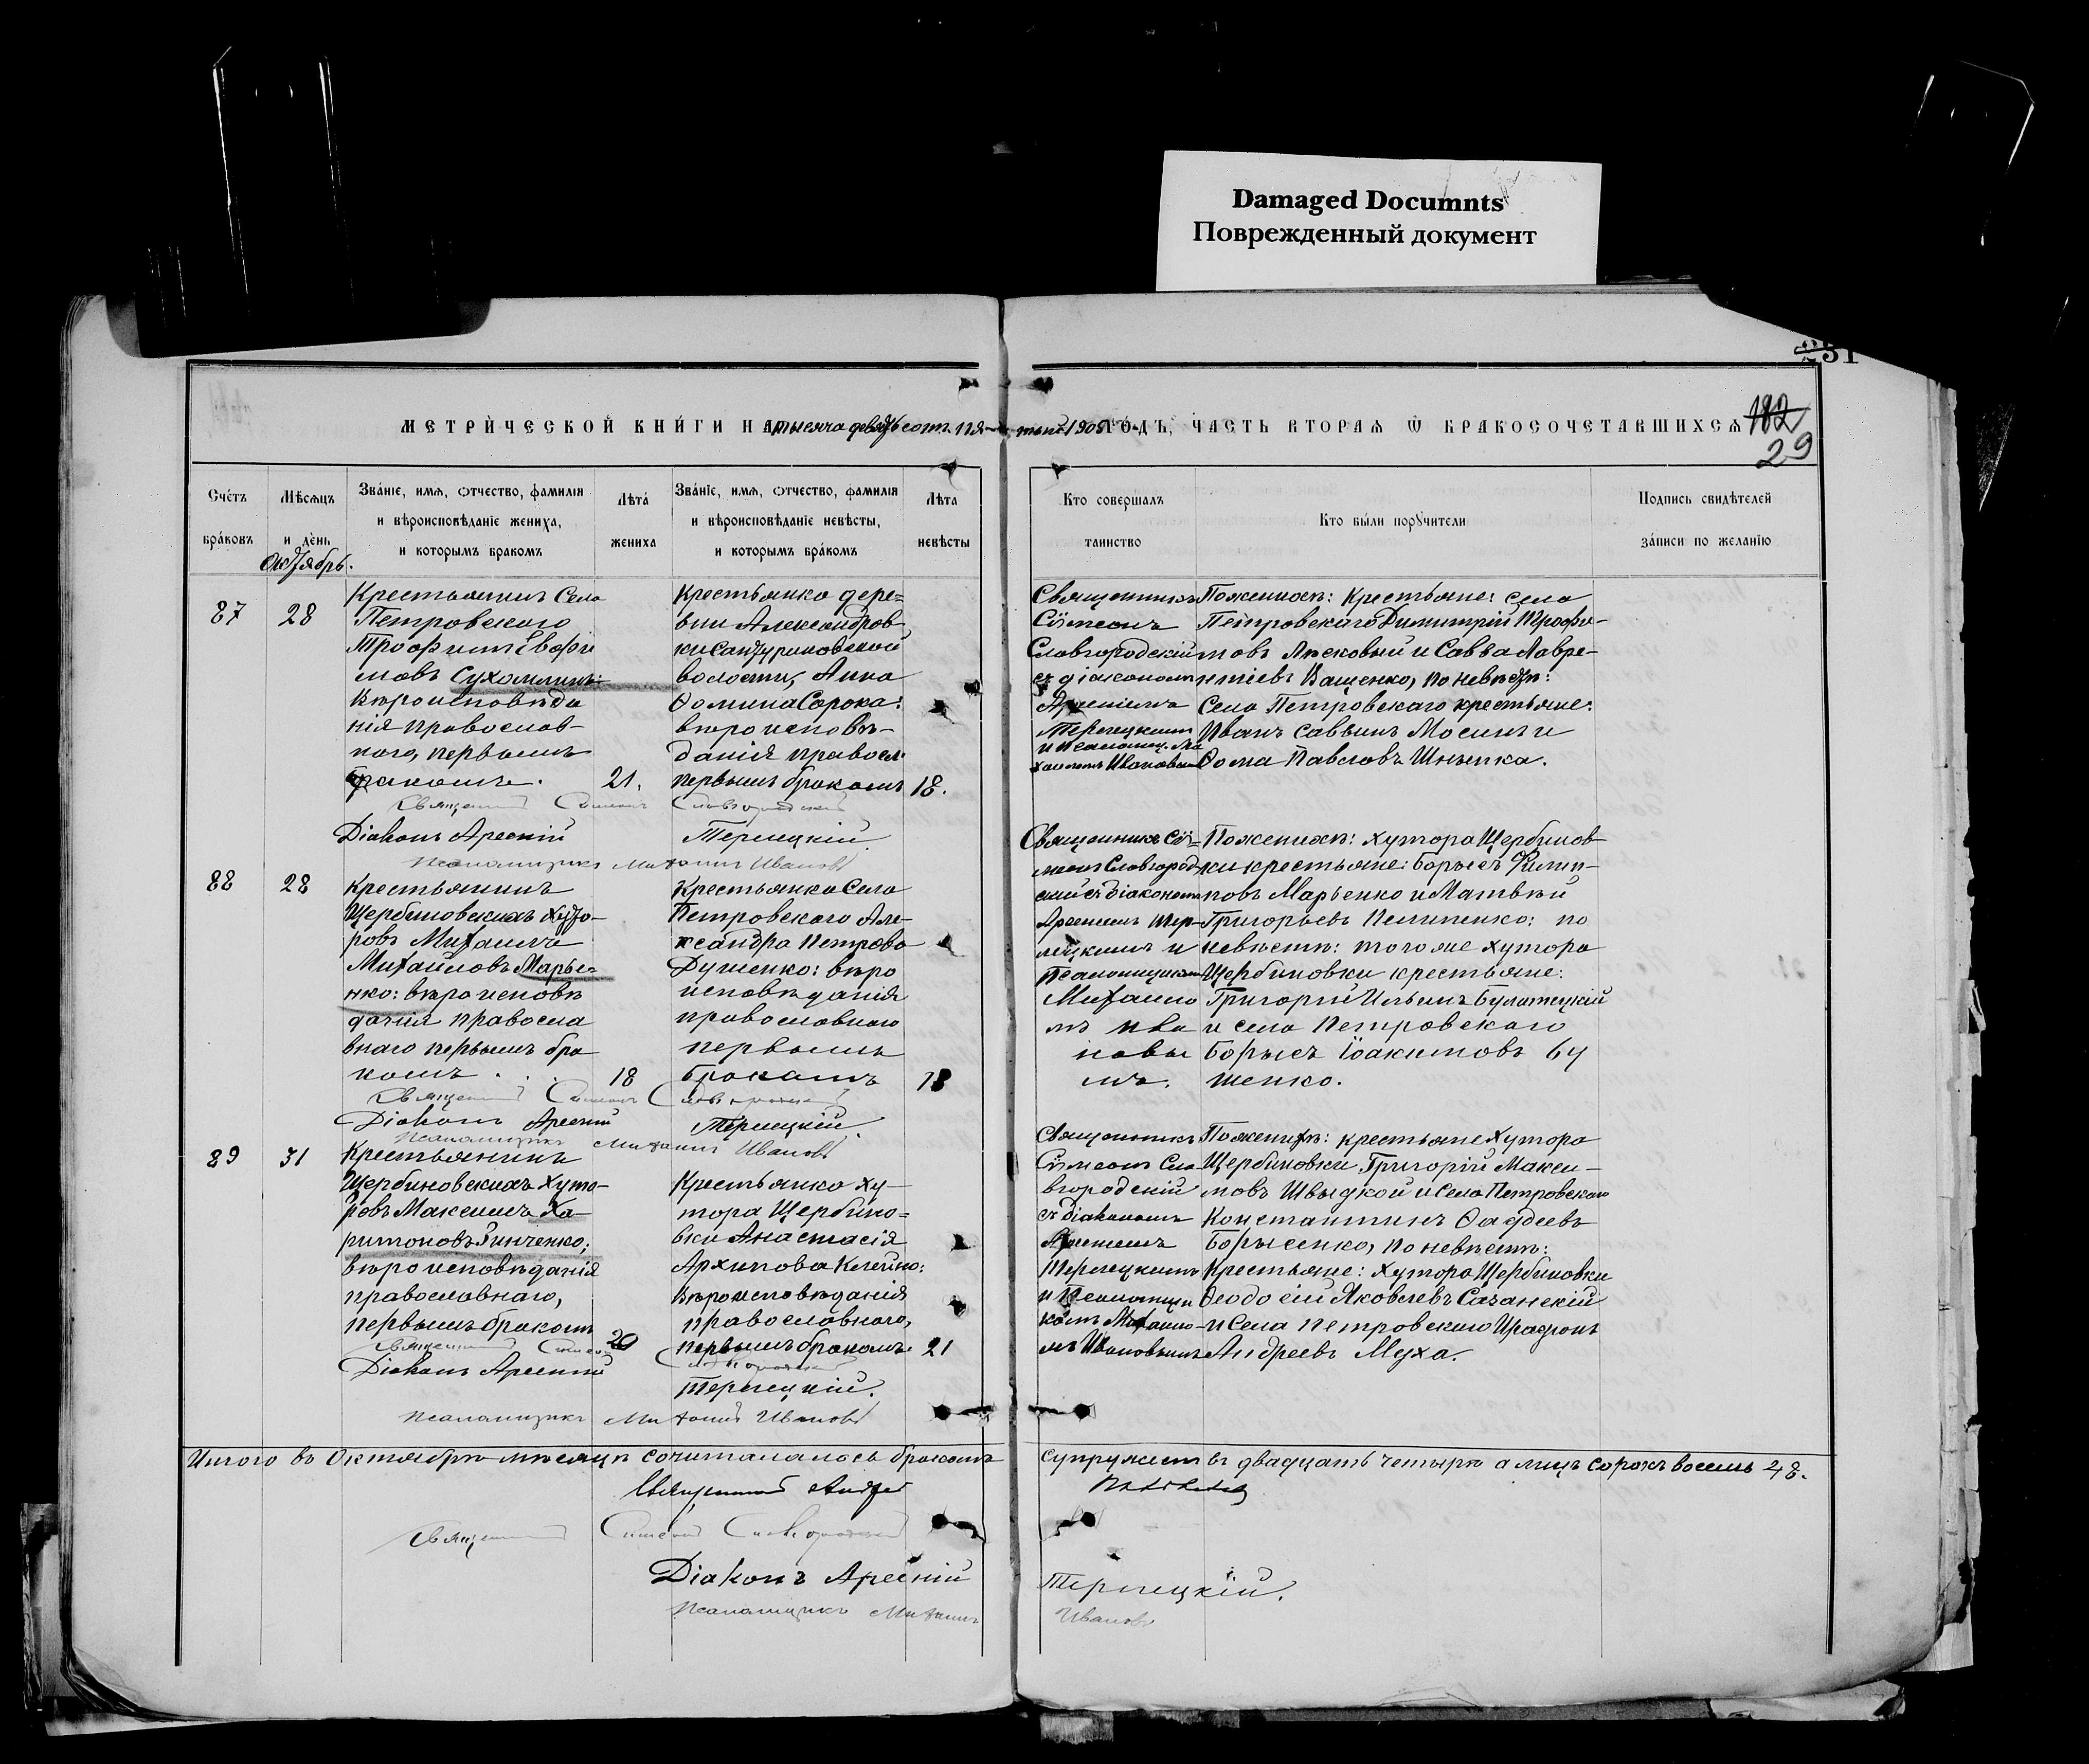 Damaged Documnts
Поврежденный документ
МЕТРИЧЕСКОЙ КНИГИ НА тысяча девятьсотъ пя-
тый 1905 ГОДЪ, ЧАСТЬ ВТОРАЯ Ѿ БРАКОСОЧЕТАВШИХСЯ
182
29
Счетъ браковъ
Мѣсяцъ и день
Званіе, имя, отчество, фамилія
и вѣроисповѣданіе жениха,
и которымъ бракомъ
Лѣта жениха
Званіе, имя, отчество, фамилія
и вѣроисповѣданіе невѣсты,
и которымъ бракомъ
Лѣта невѣсты
Кто совершалъ
таинство
Кто были поручители
Подпись свидѣтелей
записи по желанію
Октябрь.
87
28
Крестьянинъ Села
Петровскаго
Трофимъ Евфи
мовъ Сухомлинъ:
вѣроисповѣда
нія православ-
наго, первымъ
бракомъ.
21.
Крестьянка дере=
вни Александров
ки
волости, Анна
Ѳомина Сорока:
вѣроисповѣ-
данія правосл.
первымъ бракомъ
18.
Священникъ
Сѵмеонъ
Славгородскій
съ діакономъ
Арсеніемъ
Терлецкимъ
и псаломщ. Ми
хаиломъ Ивановымъ
По женихѣ: крестьяне: села
Петровскаго Димитрій Трофи-
мовъ Лясковый и Савва Лавре-
нтіевъ Ващенко, по невѣстѣ:
Села Петровскаго крестьяне:
Иванъ Саввинъ Мосинъ и
Ѳома Павловъ Шныпка.
Священникъ Симеонъ Славгородскій
Діаконъ Арсеній Терлецкій.
Псаломщикъ Михаилъ Ивановъ
88
28
Крестьянинъ
Щербиновскихъ Хуто-
ровъ Михаилъ
Михайловъ Марье=
нко: вѣроисповѣ
данія правосла
внаго первымъ бра
комъ . . .
18
Крестьянка Села
Петровскаго Але-
ксандра Петрова
Душенко: вѣро
исповѣданія
православнаго
первымъ
бракомъ
18
Священникъ Сѵ=
меонъ Славгород
скій съ діакономъ
Арсеніемъ Тер-
лецкимъ и
Псаломщикомъ
Михаило
мъ Ива
новы
мъ.
По женихѣ: хутора Щербинов
ки крестьяне: Борысъ Филип-
повъ Марьенко и Матвѣй
Григорьевъ Пилипенко: по
невѣстѣ: того же хутора
Щербиновки крестьяне:
Григорій Ильинъ Булатецкій
и села Петровскаго
Борысъ Іоакимовъ Бу
шенко.
Священникъ Симеонъ Славгородскій
Діаконъ Арсеній Терлецкій.
Псаломщикъ Михаилъ Ивановъ
89
31
Крестьянинъ
Щербиновскихъ Хуто-
ровъ Максимъ Ха-
ритоновъ Зинченко;
вѣроисповѣданія
православнаго,
первымъ бракомъ
20
Крестьянка ху-
тора Щербино=
вки Анастасія
Архипова Клейно:
вѣроисповѣданія
православнаго,
первымъ бракомъ.
21
Священникъ
Сѵмеонъ Сла
вгородскій
съ діакономъ
Арсеніемъ
Терлецкимъ
и Псаломщи
комъ Михаило-
мъ Ивановымъ
По женихѣ: крестьяне Хутора
Щербиновки Григорій Макси-
мовъ Швыдкой и села Петровскаго
Константинъ Ѳаддеевъ
Борысенко, по невѣстѣ:
Крестьяне: хутора Щербиновки
Ѳеодосій Яковлевъ Сазанскій
и Села Петровскаго
Андреевъ Муха.
Священникъ Симеонъ Славгородскій
Діаконъ Арсеній Терлецкій.
Псаломщикъ Михаилъ Ивановъ
Итого въ Октябрѣ мѣсяцѣ сочиталось бракомъ
супружествъ двадцать четыре а лицъ сорокъ восемь 48.
Священникъ Андрей
Священникъ Симеонъ Славгородскій
Діаконъ Арсеній Терлецкій.
Псаломщикъ Михаилъ Ивановъ